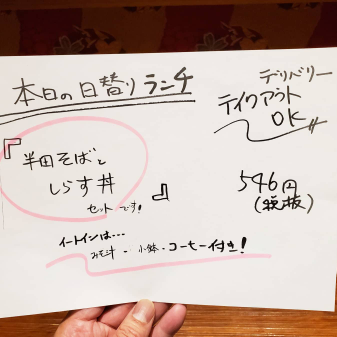 本日の日替りランチ
デリバリー
テイクアウト
OK
『半田そばと
しらす丼
セットです!』
546円
(税抜)
イートインは…
みそ汁・小鉢・コーヒー付き!